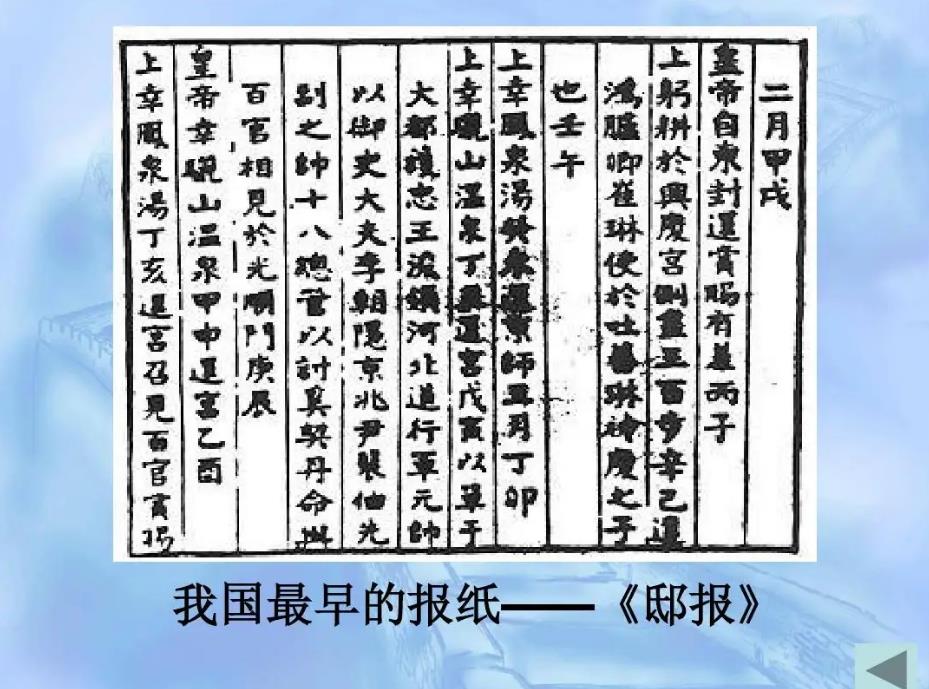 二月甲戌
皇帝自東封還賞賜有差丙子
上躬耕於興慶宮側盡三百步辛已還
鴻臚卿崔琳使於吐蕃琳神慶之子
也壬午
上幸鳳泉湯癸未還京師五月丁卯
上幸驪山溫泉丁丑還宮戊寅以單于
大都護忠王浚領河北道行軍元帥
以御史大夫李朝隱京兆尹裴伷先
副之帥十八總管以討奚契丹命
百官相見於光順門庚辰
皇帝幸驪山溫泉甲申還宮乙酉
上幸鳳泉湯丁亥還宮召見百官賞
我国最早的报纸——《邸报》